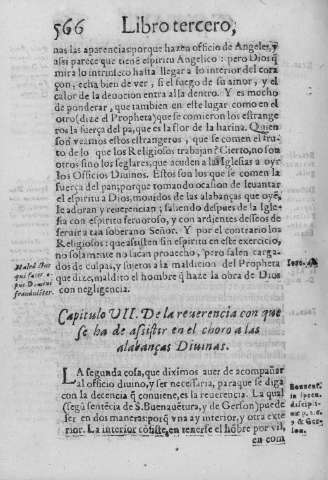 566 Libro tercero,
nas las aparencias: porque hazen officio de Angeles, y
assi parece que tiene espiritu Angelico: pero Dios q̃
mira lo intrinseco hasta llegar a lo interior del cora
çon, echa bien de ver, si el fuego de su amor, y el
calor de la deuocion entra alla dentro. Y es mucho
de ponderar, que tambien en este lugar como en el
otro (dize el Propheta) que se comieron los estrange
ros la fuerça del pã, que es la flor de la harina. Quien
son veamos estos estrangeros, que se comen el fru-
to de lo que los Religiosos trabajan? Cierto, no son
otros sino los seglares, que acuden a las Iglesias a oyr
los Officios Diuinos. Estos son los que se comen la
fuerça del pan; porque tomando ocasion de leuantar
el espiritu a Dios, mouidos de las alabanças que oyẽ,
le adoran y reuerencian; saliendo despues de la Igle-
sia con espiritu feruoroso, y con ardientes desseos de
seruir a tan soberano Señor. Y por el contrario los
Religiosos: que assisten sin espiritu en este exercicio,
no solamente no sacan prouecho, pero salen carga-
dos de culpas, y sujetos a la maldicion del Propheta
que dize, maldito el hombre q̃ haze la obra de Dios
con negligencia.
qui facit o
pus Domini
fraudulẽter.
Capitulo VII. De la reuerencia con que
se ha de assistir en el choro a las
alabanças Diuinas.
LA segunda cosa, que diximos auer de acompañar
al officio diuino, y ser necessaria, paraque se diga
con la decencia q̃ conuiene, es la reuerencia. La qual
(segũ sentẽcia de S. Buenauẽtura, y de Gerson) puede
ser en dos maneras: porq̃ vna ay interior, y otra exte
rior. La interior cõsiste, en tenerse el hõbre por vil,
en com
Bonauent.
in specu.
discipli.
& Ger
son.